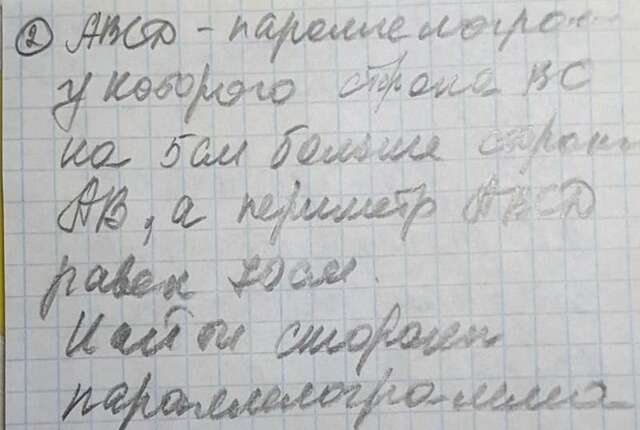 ② ABCD - параллелограмм
у которого сторона BC
на 5 см больше стороны
AB, а периметр ABCD
равен 70 см.
Найти стороны
параллелограмма